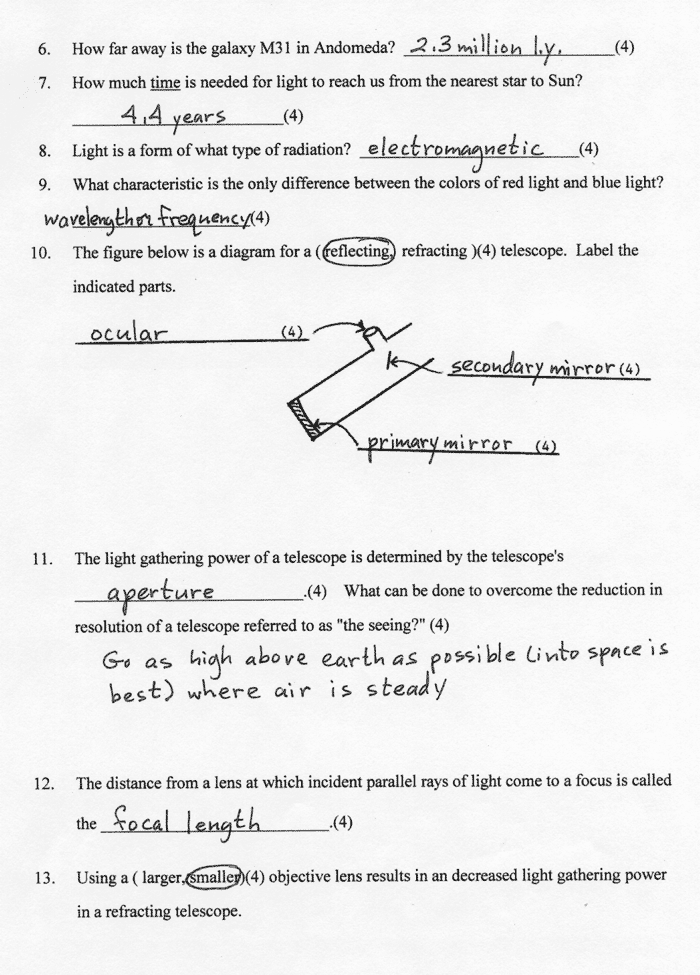 6. How far away is the galaxy M31 in Andomeda? 2.3 million l.y. (4)
7. How much time is needed for light to reach us from the nearest star to Sun?
4.4 years (4)
8. Light is a form of what type of radiation? electromagnetic (4)
9. What characteristic is the only difference between the colors of red light and blue light?
wavelength or frequency (4)
10. The figure below is a diagram for a (reflecting, refracting )(4) telescope. Label the
indicated parts.
ocular (4)
secondary mirror (4)
primary mirror (4)
11. The light gathering power of a telescope is determined by the telescope's
aperture .(4) What can be done to overcome the reduction in
resolution of a telescope referred to as "the seeing?" (4)
Go as high above earth as possible (into space is
best) where air is steady
12. The distance from a lens at which incident parallel rays of light come to a focus is called
the focal length .(4)
13. Using a ( larger, smaller)(4) objective lens results in an decreased light gathering power
in a refracting telescope.